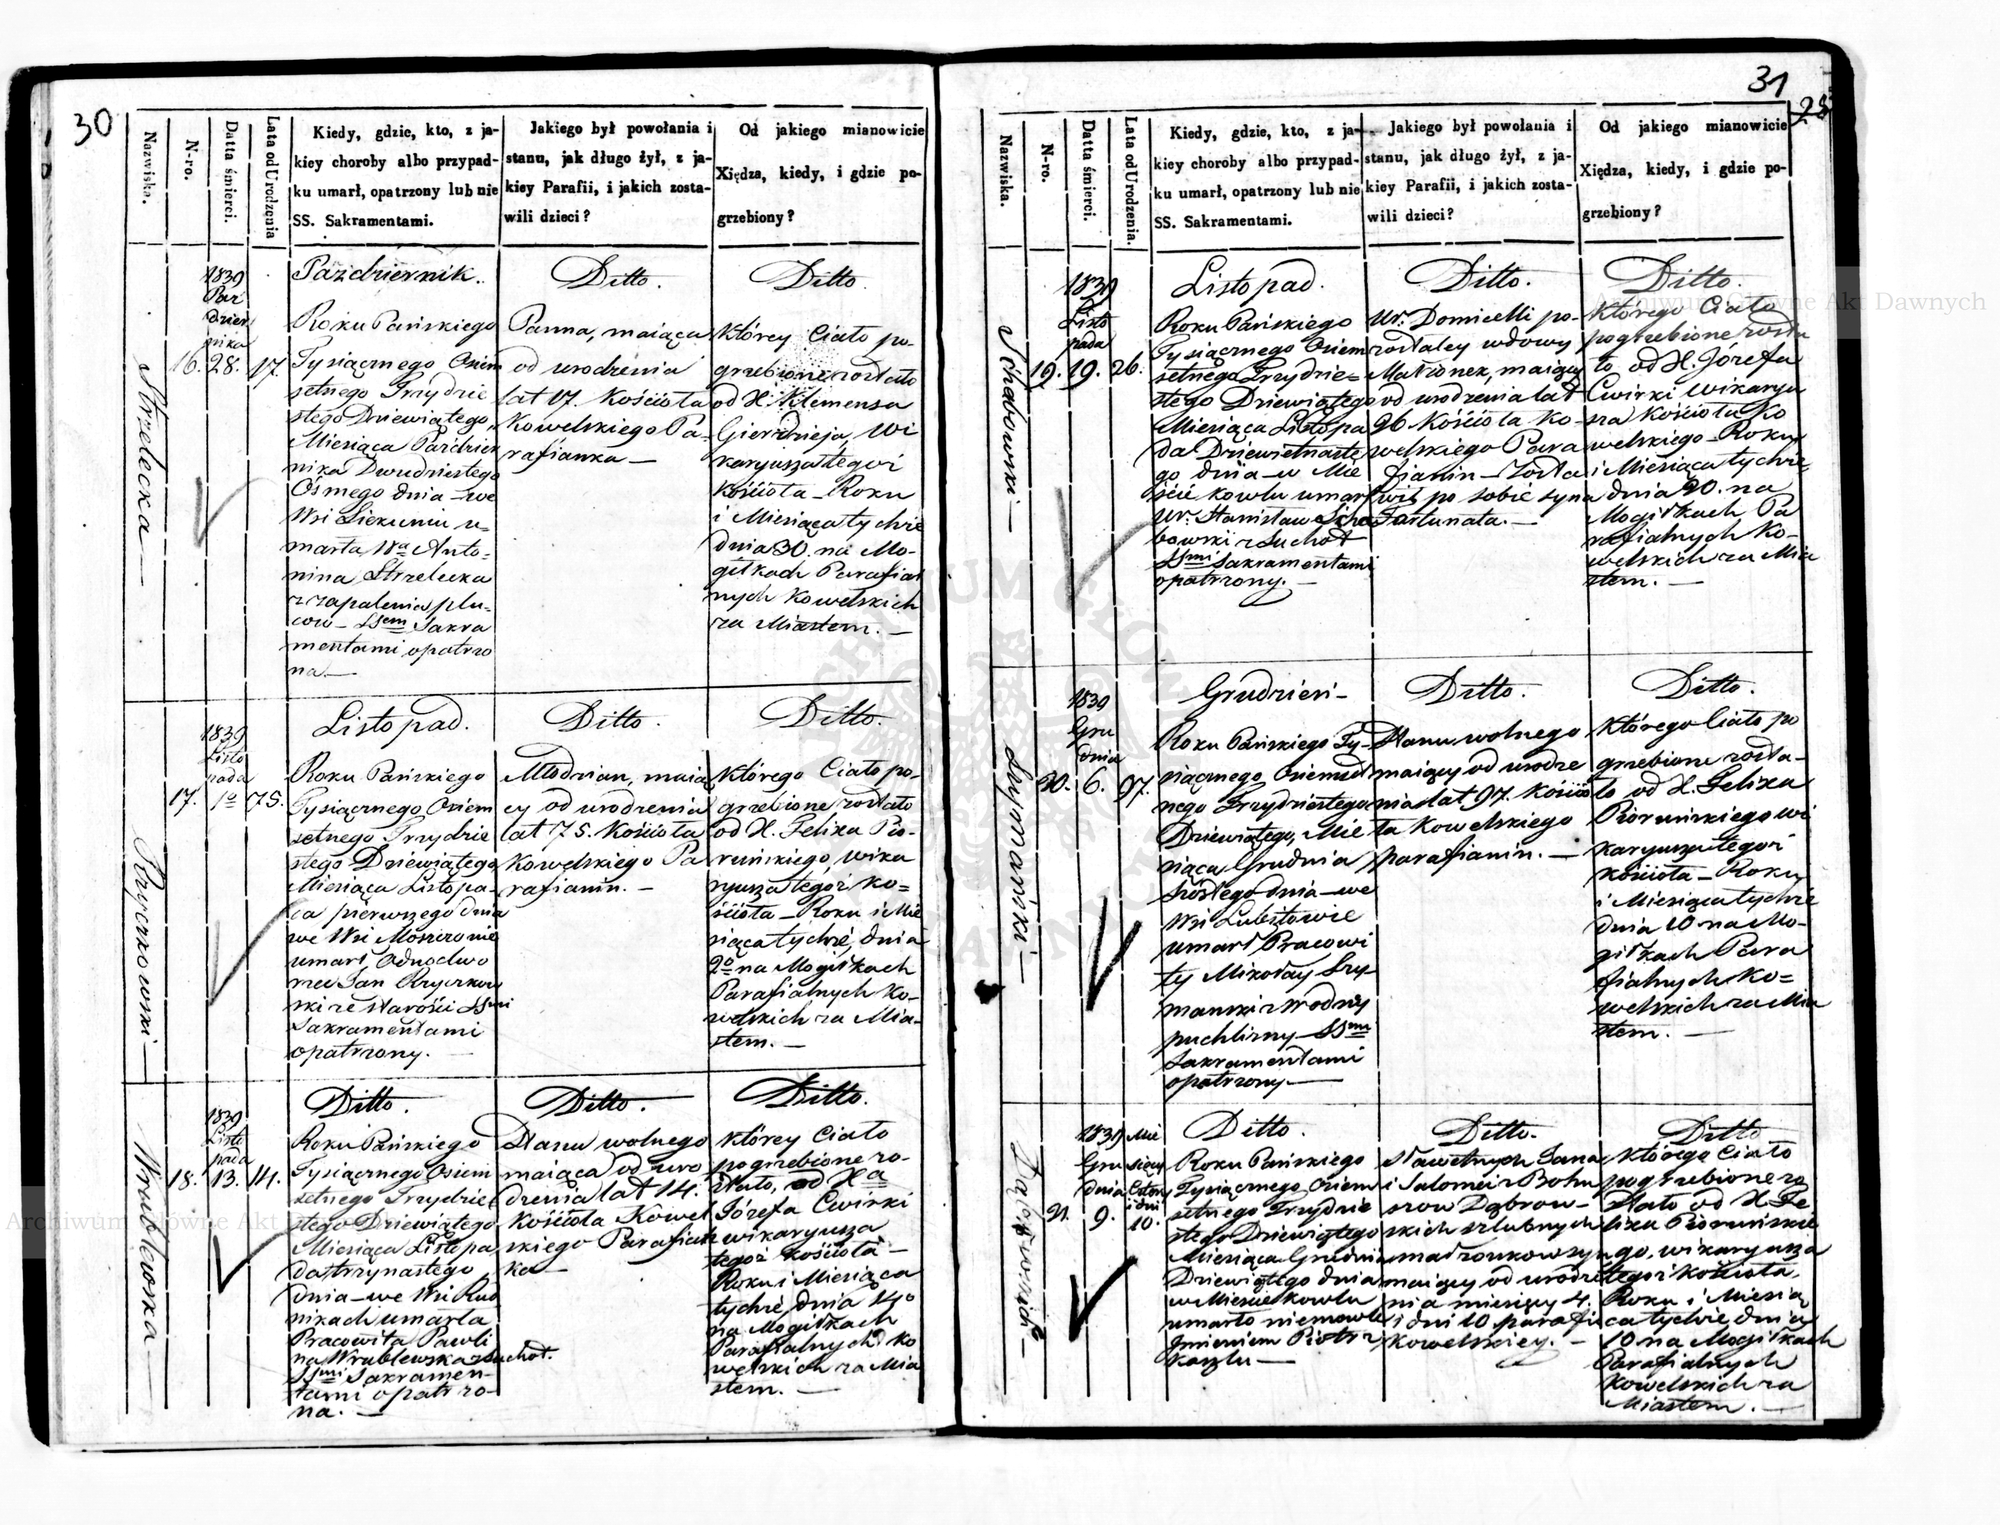 30
Nazwiska.
N-ro.
Datta śmierci.
Lata od Urodzenia
Kiedy, gdzie, kto, z ja-
kiey choroby albo przypad-
ku umarł, opatrzony lub nie
SS. Sakramentami.
Jakiego był powołania i
stanu, jak długo żył, z ja-
kiey Parafii, i jakich zosta-
wili dzieci?
Od jakiego mianowicie
Xiędza, kiedy, i gdzie po-
grzebiony?
Strzelecka
16.
1839
Paź
dzier
nika
28.
17.
Październik.
Roku Pańskiego
Tysiącznego Ośm
setnego Trzydzie
stego Dziewiątego,
Miesiąca Paździer
nika Dwudziestego
Ósmego dnia – we
Wsi
u-
marła Wa Anto-
nina Strzelecka
z zapalenia płu-
cow – SSemi Sakra
mentami opatrzo
na. —
Ditto.
Panna, maiąca
od urodzenia
lat 17. Kościoła
Kowelskiego Pa-
rafianka —
Ditto.
Którey Ciało po-
grzebione zostało
od X. Klemensa
Gierdzieja, Wi
karyusza tegoż
Kościoła – Roku
i Miesiąca tychże
dnia 30. na Mo-
giłkach Parafial
nych Kowelskich
za Miastem. —
Ryczkowski —
17.
1839
Listo
pada
1o
75.
Listopad.
Roku Pańskiego
Tysiącznego Osiem
setnego Trzydzie
stego Dziewiątego
Miesiąca Listopa-
da pierwszego dnia
we Wsi
umarł, Odnodwo
rzec Jan Ryczkow
ski ze starości SSmi
Sakramentami
opatrzony. —
Ditto.
Młodzian, maią
cy od urodzenia
lat 75. Kościoła
Kowelskiego Pa
rafianin. —
Ditto.
Którego Ciało po-
grzebione zostało
od X. Felixa Pio-
ruńskiego, wika
ryusza tegoż Ko=
ścioła – Roku i Mie
siąca tychże, dnia
2o na Mogiłkach
Parafialnych Ko-
welskich za Mia-
stem. —
Wrublewska
18.
1839
Listo
pada
13.
14.
Ditto.
Roku Pańskiego
Tysiącznego Osiem
setnego Trzydzie
stego Dziewiątego
Miesiąca Listopa
da trzynastego
dnia – we Wsi Rud
nikach umarła
Pracowita Pawli
na Wrublewska z Suchot.
SSmi Sakramen-
tami opatrzo-
na. —
Ditto.
Stanu wolnego
maiąca od uro
dzenia lat 14.
Kościoła Kowel
skiego Parafian
ka —
Ditto.
Którey Ciało
pogrzebione zo-
stało, od Xa
Józefa Cwirki
wikaryusza
tegoż Kościoła –
Roku i Miesiąca
tychże, dnia 14o
na Mogiłkach
Parafialnych Ko
welskich za Mia
stem. —
31
28
Nazwiska.
N-ro.
Datta śmierci.
Lata od Urodzenia.
Kiedy, gdzie, kto, z ja-
kiey choroby albo przypad-
ku umarł, opatrzony lub nie
SS. Sakramentami.
Jakiego był powołania i
stanu, jak długo żył, z ja-
kiey Parafii, i jakich zosta-
wili dzieci?
Od jakiego mianowicie
Xiędza, kiedy, i gdzie po-
grzebiony?
19.
1839
Listo
pada
19.
26.
Listopad.
Roku Pańskiego
Tysiącznego Osiem
setnego Trzydzie=
stego Dziewiątego
Miesiąca Listopa
da Dziewietnaste
go dnia – w Mie
ście Kowlu umarł
Ur. Stanisław
bowski z Suchot
SSmi Sakramentami
opatrzony. —
Ditto.
Ur. Domicelli po-
zostałey wdowy
Małżonek, maiący
od urodzenia lat
26 Kościoła Ko-
welskiego Para
fianin – Zosta
wił po sobie syna
Fortunata. —
Ditto.
Którego Ciało
pogrzebione zosta
ło od X. Józefa
Cwirki Wikaryu
sza Kościoła Ko
welskiego – Roku
i Miesiąca tychże,
dnia 20. na
Mogiłkach Pa
rafialnych Ko-
welskich za Mia
stem. —
Szymański —
20.
1839
Gru
dnia
6.
27.
Grudzień –
Roku Pańskiego Ty-
siącznego Osiemset
nego Trzydziestego
Dziewiątego, Mie
siąca Grudnia
Szóstego dnia – we
Wsi Lubitowie
umarł Pracowi
ty Mikołay Szy-
manski z Wodney
puchliny – SSmi
Sakramentami
opatrzony. —
Ditto.
Stanu wolnego
maiący od urodze
nia lat 27. Kościo
ła Kowelskiego
parafianin. —
Ditto.
Którego Ciało po
grzebione zosta-
ło od X. Felixa
Pioruńskiego wi
karyusza tegoż
Kościoła – Roku
i Miesiąca tychże
dnia 10 na Mo-
giłkach Para
fialnych Ko=
welskich za Mia
stem. —
21.
1839
Gru
dnia
9.
Mie
sięcy
Cztery
i dni
10.
Ditto.
Roku Pańskiego
Tysiącznego Osiem
setnego Trzydzie
stego Dziewiątego
Miesiąca Grudnia
Dziewiątego dnia
w Mieście Kowlu
umarło niemowle
Imieniem Piotr z
Kaszlu —
Ditto.
Sławetnych Jana
i Salomei z Bohu
szow Dąbrow-
skich szlubnych
małżonkow syn
maiący od urodze
nia miesięcy 4.
i dni 10 parafii
Kowelskiey. —
Ditto
Którego Ciało
pogrzebione zo
stało od X. Fe
lixa Pioruńskie
go, wikaryusza
tegoż Kościoła,
Roku i Miesią
ca tychże, dnia
10 na Mogiłkach
Parafialnych
Kowelskich za
Miastem. —
Archiwum Główne Akt Dawnych
Archiwum Główne Akt Dawnych
ARCHIWUM GŁÓWNE AKT DAWNYCH